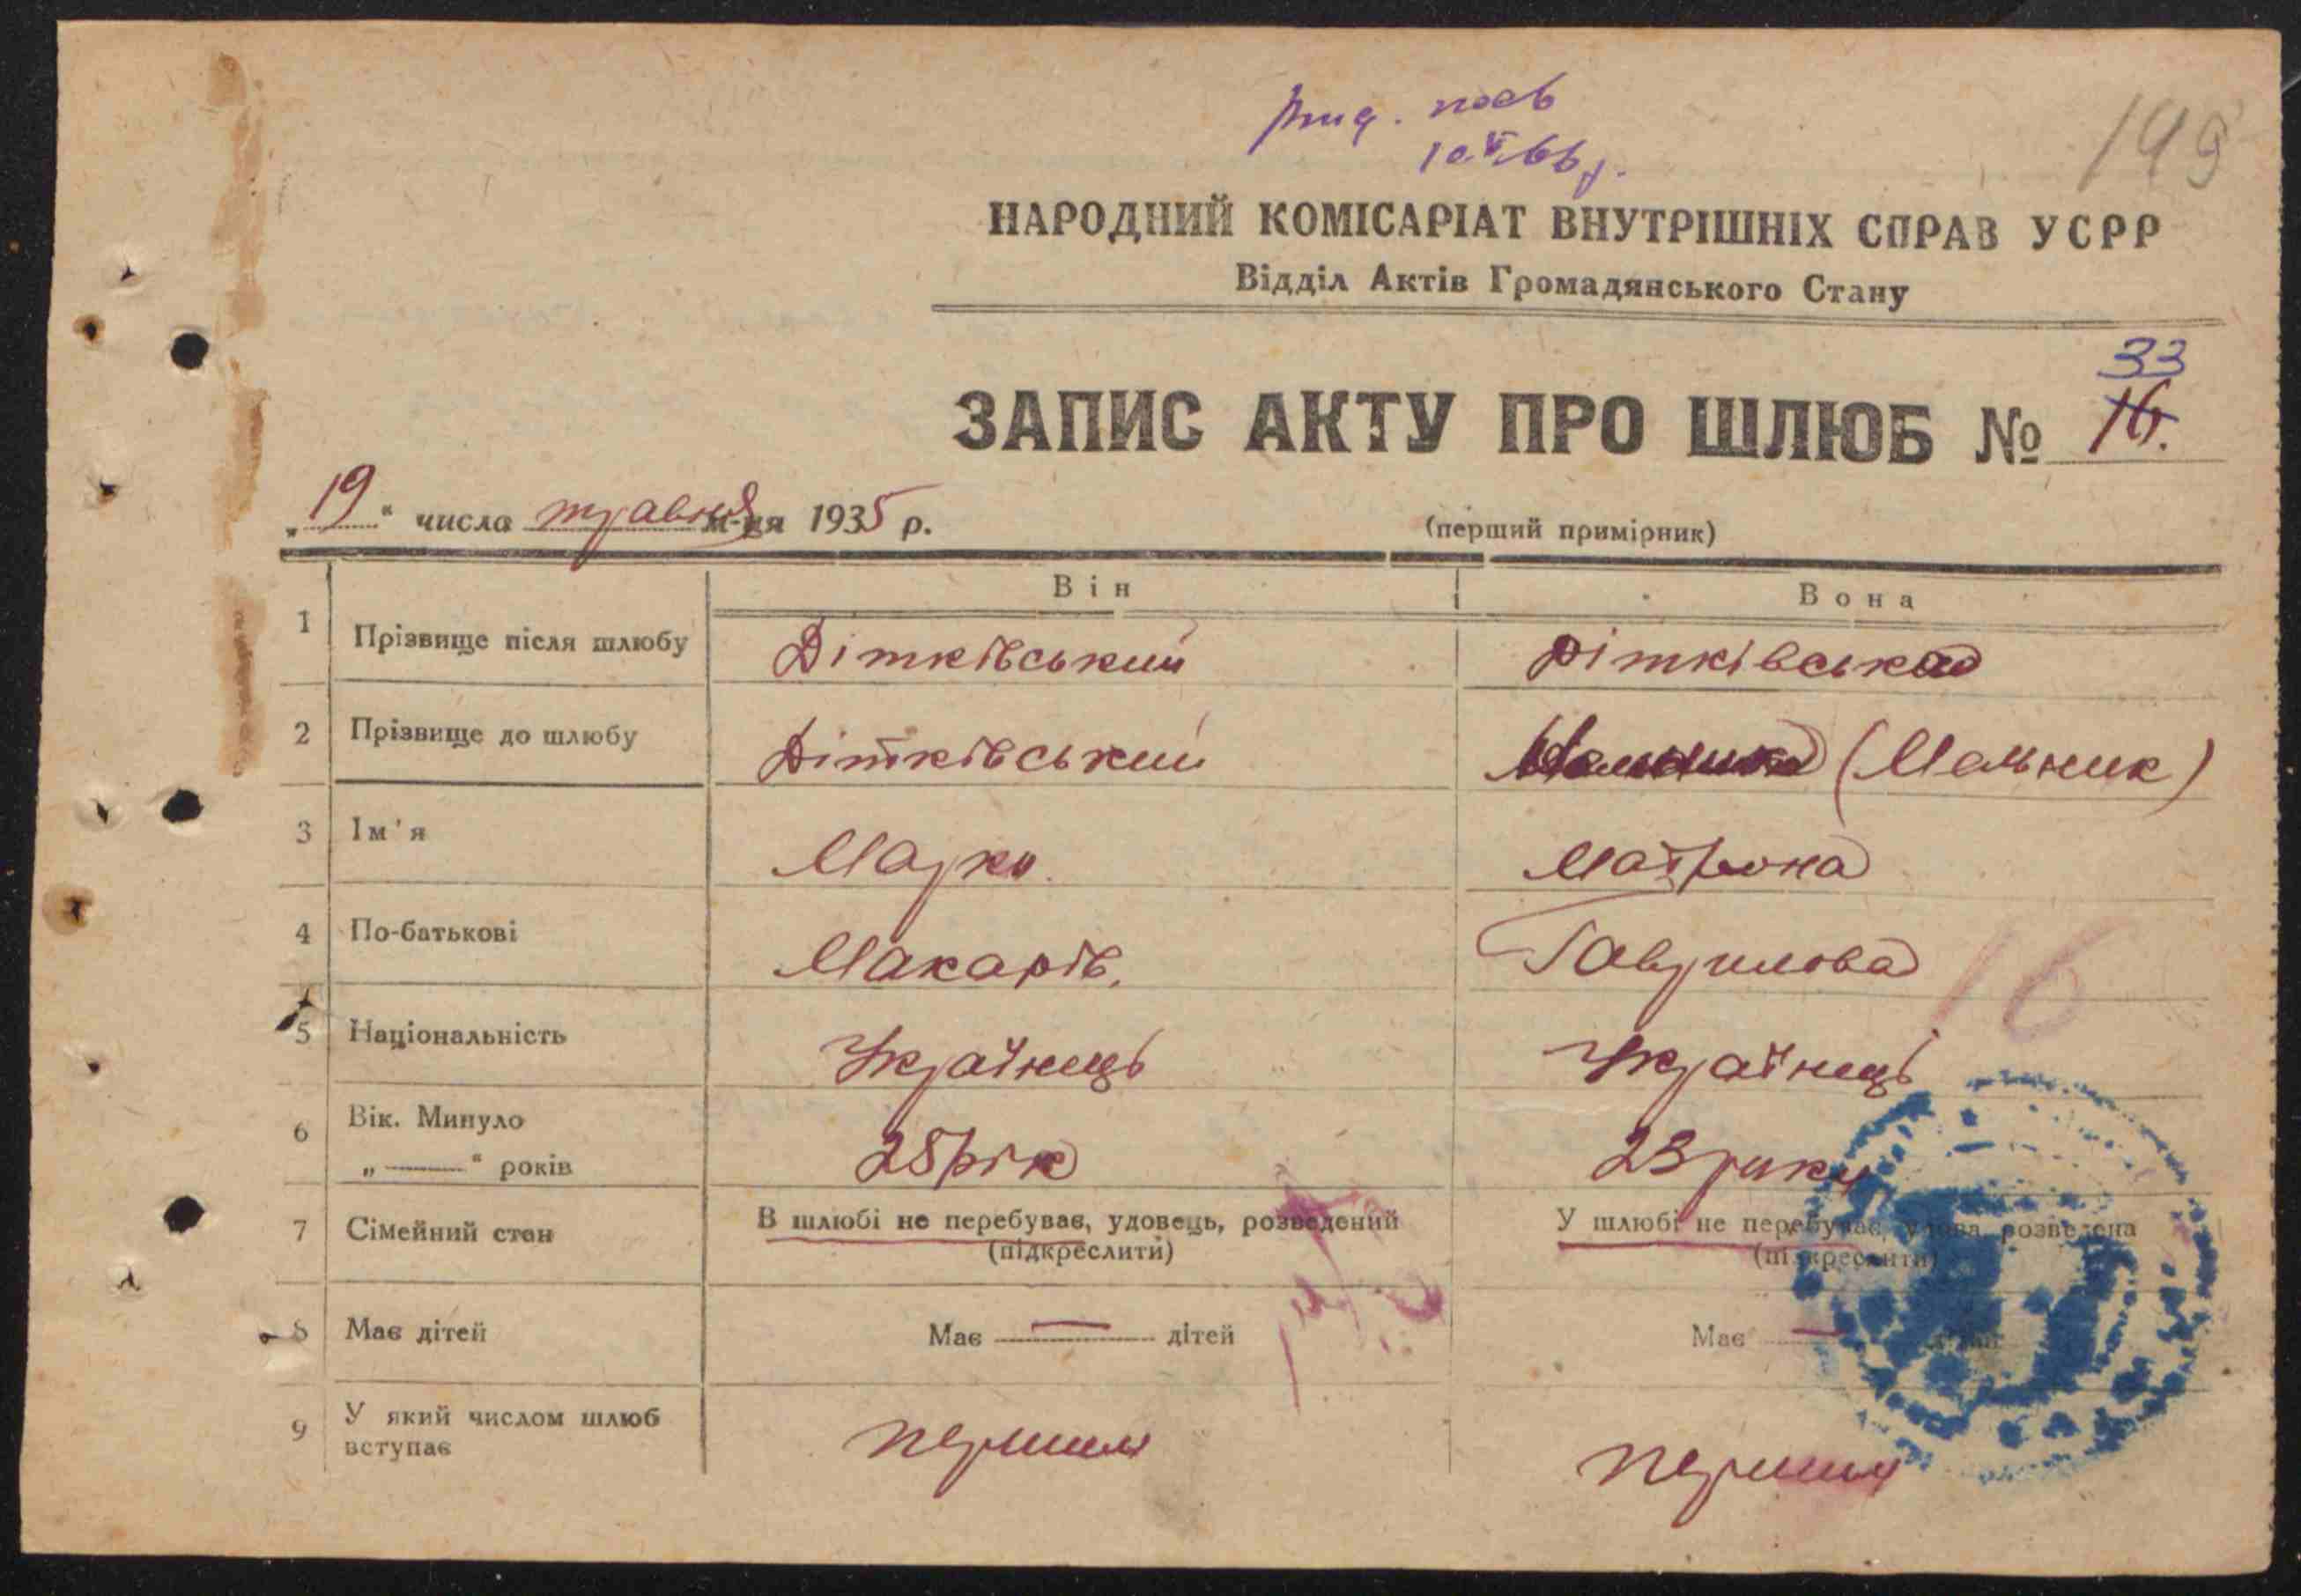 199
НАРОДНИЙ КОМІСАРІАТ ВНУТРІШНІХ СПРАВ УСРР
Відділ Актів Громадянського Стану
33
ЗАПИС АКТУ ПРО ШЛЮБ № 16.
„19“ числа травня м-ця 1935 р.
(перший примірник)
Він Вона
1 Прізвище після шлюбу Дітківський Дітківська
2 Прізвище до шлюбу Дітківський (Мельник)
3 Ім'я Марко. Матрона
4 По-батькові Макарів. Гаврилова
16
5 Національність Українець Українець
6 Вік. Минуло
„——“ років 28 рік 23 роки
7 Сімейний стан В шлюбі не перебуває, удовець, розведений У шлюбі не перебуває, удова, розведена
(підкреслити) (підкреслити)
8 Має дітей Має — дітей Має —
9 У який числом шлюб
вступає першим першим